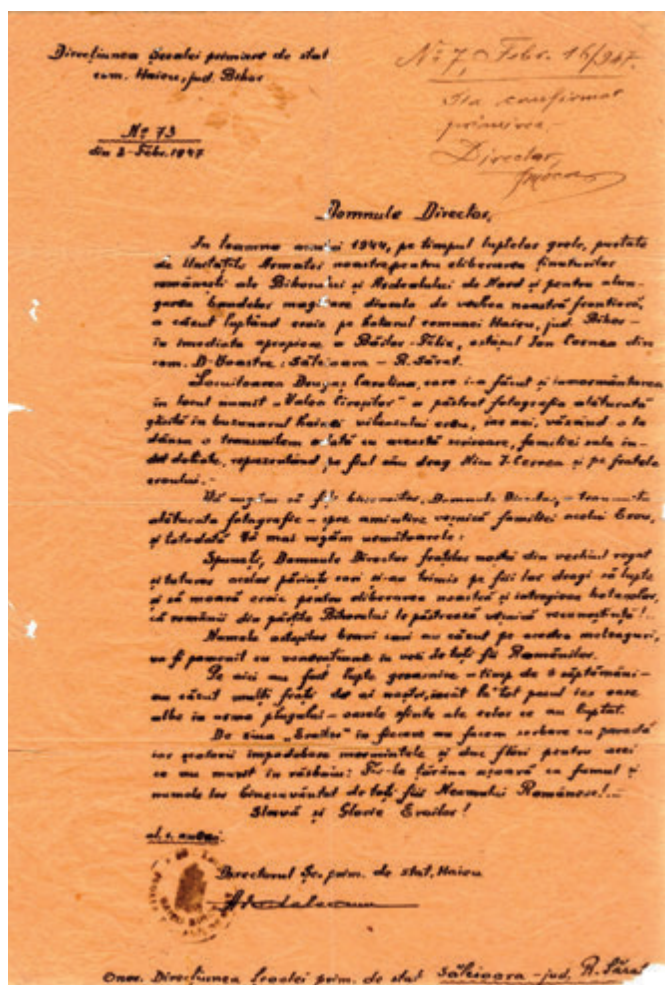 Direcțiunea Școalei primare de stat
com. Haieu, jud. Bihor
No 7, Febr. 16/947.
S'a confirmat
primirea.
Director,
No 73
din 2-Febr. 1947
Domnule Director,
In toamna anului 1944, pe timpul luptelor grele, purtate
de Unitățile Armatei noastre pentru eliberarea ținuturilor
românești ale Bihorului și Ardealului de Nord și pentru alun-
garea bandelor maghiare dincolo de vechea noastră frontieră,
a căzut luptând eroic pe hotarul comunei Haieu, jud. Bihor-
în imediata apropiere a Băilor-Felix, ostașul Ion Cernea din
com. D-Voastre: Sălcioara - R. Sărat.
Locuitoarea Drugaș Carolina, care i-a făcut și înmormântarea
în locul numit "Valea Cireșilor" a păstrat fotografia alăturată
găsită în buzunarul hainei viteazului erou, iar noi, văzând o
o transmitem odată cu această scrisoare, familiei sale în-
reprezentând pe fiul său drag Nicu I. Cernea și pe fratele
eroului.-
Vă rugăm să fiți binevoitor, Domnule Director, a transmite
alăturata fotografie - spre amintire veșnică familiei acelui Erou,
și totodată Vă mai rugăm următoarele:
Spuneți, Domnule Director fraților noștri din vechiul regat
și tuturor acelor părinți cari și-au trimis pe fiii lor dragi să lupte
și să moară eroic pentru eliberarea noastră și întregirea hotarelor,
că românii din părțile Bihorului le păstrează veșnică recunoștință!..
Numele ostașilor bravi cari au căzut pe aceste meleaguri,
va fi pomenit cu venerațiune în veci de toți fiii Românilor.
Pe aici au fost lupte groaznice - timp de 6 săptămâni-
au căzut mulți frați de ai noștri, încât la tot pasul ies oase
albe în urma plugului - oasele sfinte ale celor ce au luptat.
De ziua "Eroilor" în fiecare an facem serbare cu
iar școlarii împodobesc mormintele și duc flori pentru acei
ce au murit în răsboiu: Fie-le țărâna ușoară ca fumul și
numele lor binecuvântat de toți fiii Neamului Românesc!..
Slavă și Glorie Eroilor!
Directorul Șc. prim. de stat, Haieu
Onor. Direcțiunea Școalei prim. de stat Sălcioara - jud. R. Sărat